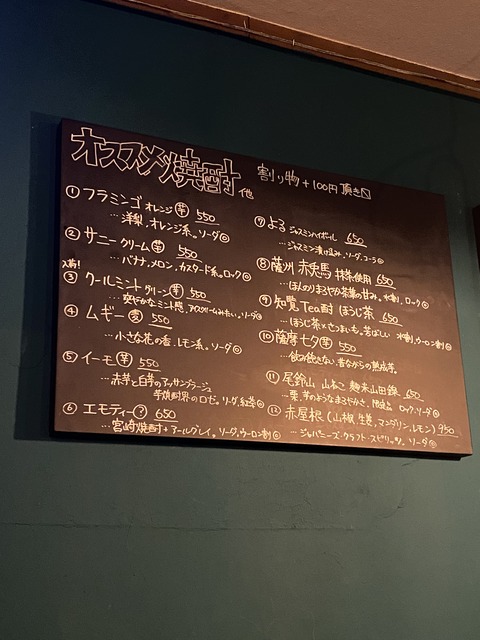 オススメ焼酎 他
割り物+100円頂き〼
① フラミンゴ オレンジ 芋 550
…洋梨、オレンジ系。ソーダ◎
② サニー クリーム 芋 550
…バナナ、メロン、カスタード系。ロック◎
③ クールミント グリーン 芋 550
…爽やかなミント感、アイスクリームみたい。ソーダ◎
④ ムギー 麦 550
…小さな花の香、レモン系。ソーダ◎
⑤ イーモ 芋 550
…赤芋と白芋のアッサンブラージュ
芋焼酎界のロゼ。ソーダ、紅茶◎
⑥ エモティー ? 650
…宮崎焼酎+アールグレイ。ソーダ、ウーロン割◎
⑦ よる ジャスミンハイボール 650
…ジャスミン漬け込み。ソーダ、コーラ◎
⑧ 薩州 赤兎馬 抹茶使用 650
…ほんのりまろやか茶葉の甘み。水割、ロック◎
⑨ 知覧Tea酎 ほうじ茶 650
…ほうじ茶×さつまいも。芳ばしい 水割、ウーロン割◎
⑩ 薩摩 七夕 芋 550
…飲み飽きない、昔ながらの熟成芋。
⑪ 尾鈴山 山ねこ 麹米山田錦 650
…栗、芋のようなまろやかさ。限定品 ロック、ソーダ◎
⑫ 赤屋根(山椒、生姜、マンダリン、レモン) 950
…ジャパニーズ・クラフト・スピリッツ。ソーダ◎